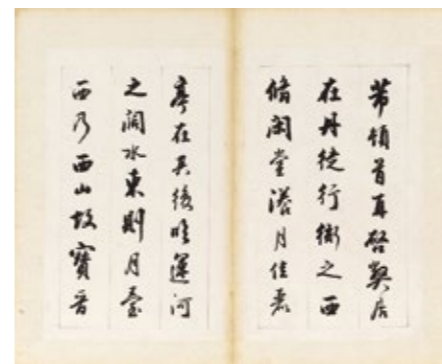 芾頓首再啓弊居
在丹徒行衙之西
脩閑堂漾月佳麗
亭在其後臨運河
之闊水東則月臺
西乃西山故寶晉